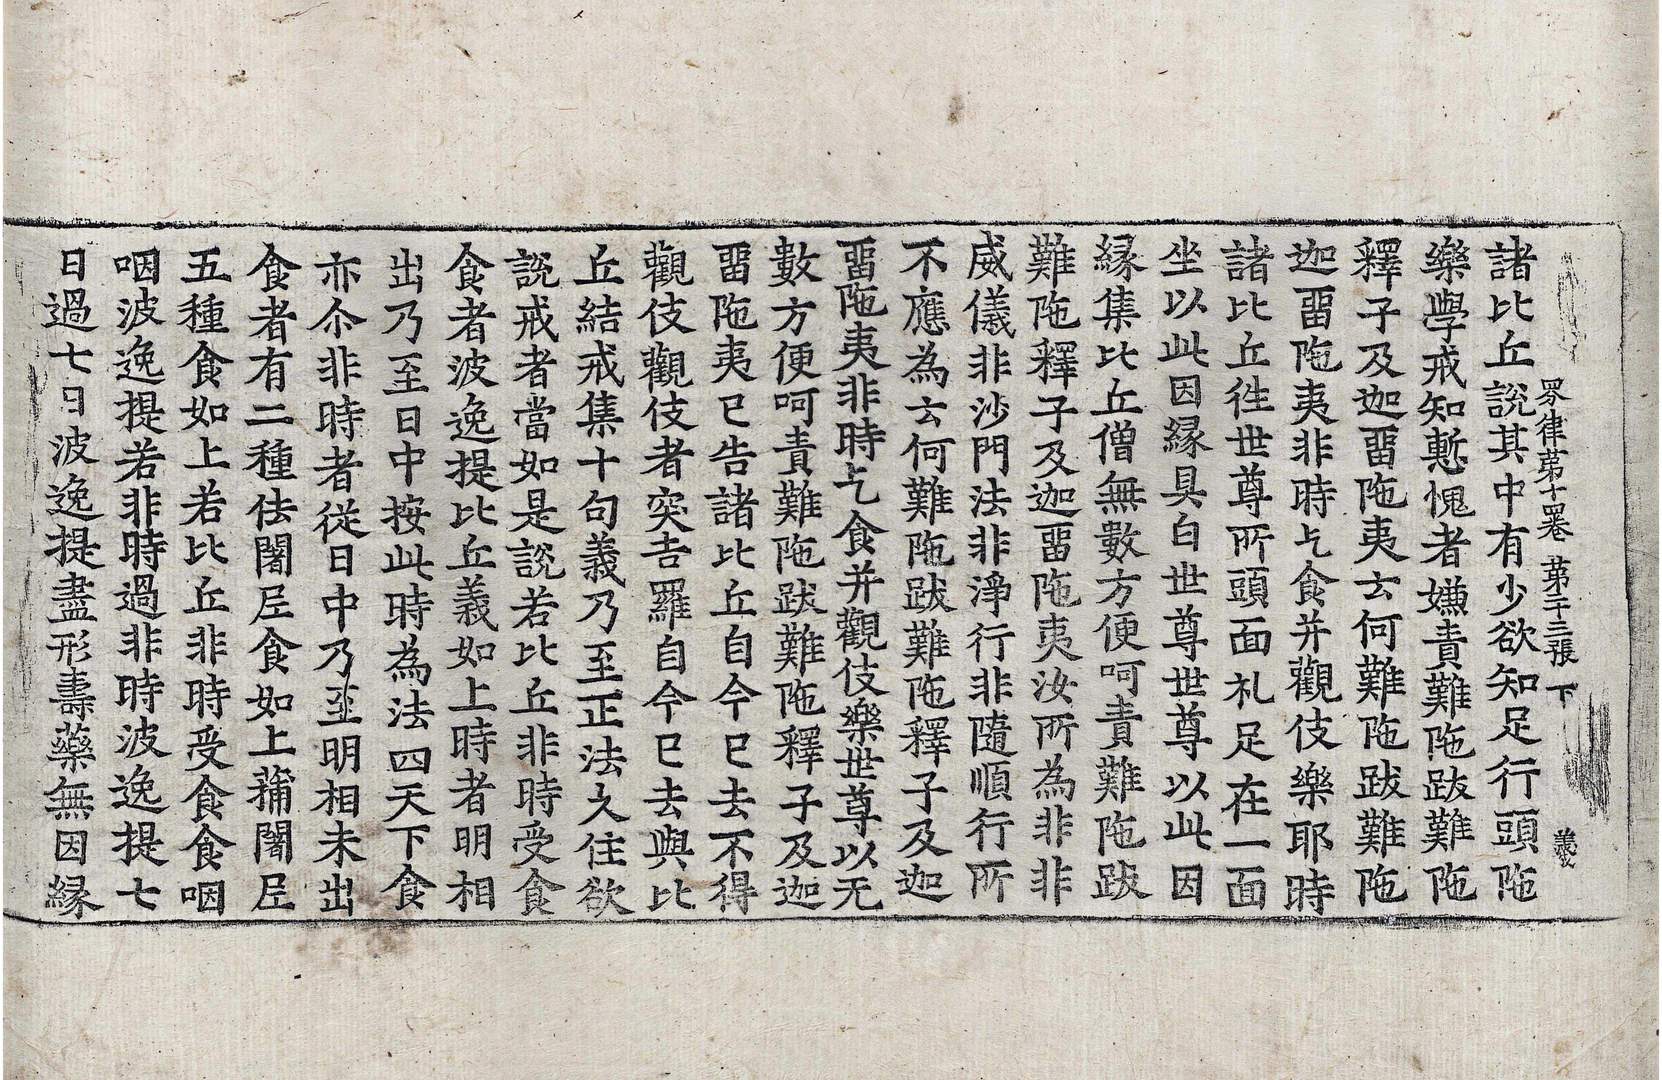 四分律第十四卷 第二十三張 下 義
諸比丘說其中有少欲知足行頭陁
樂學戒知慙愧者嫌責難陁跋難陁
釋子及迦畱陁夷云何難陁跋難陁
迦畱陁夷非時乞食并觀伎樂耶時
諸比丘徃世尊所頭面礼足在一面
坐以此因縁具白世尊世尊以此因
縁集比丘僧無數方便呵責難陁跋
難陁釋子及迦畱陁夷汝所為非非
威儀非沙門法非淨行非隨順行所
不應為云何難陁跋難陁釋子及迦
畱陁夷非時乞食并觀伎樂世尊以无
數方便呵責難陁跋難陁釋子及迦
畱陁夷已告諸比丘自今已去不得
觀伎觀伎者突吉羅自今已去與比
丘結戒集十句義乃至正法久住欲
說戒者當如是說若比丘非時受食
食者波逸提比丘義如上時者明相
出乃至日中按此時為法四天下食
亦尒非時者從日中乃至明相未出
食者有二種佉闍尼食如上蒱闍尼
五種食如上若比丘非時受食食咽
咽波逸提若非時過非時波逸提七
日過七日波逸提盡形壽藥無因縁